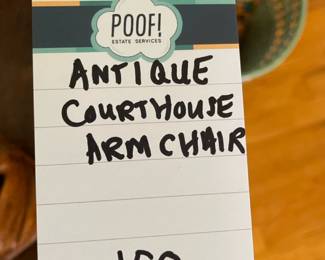 POOF!
ESTATE SERVICES
ANTIQUE
COURTHOUSE
ARM CHAIR